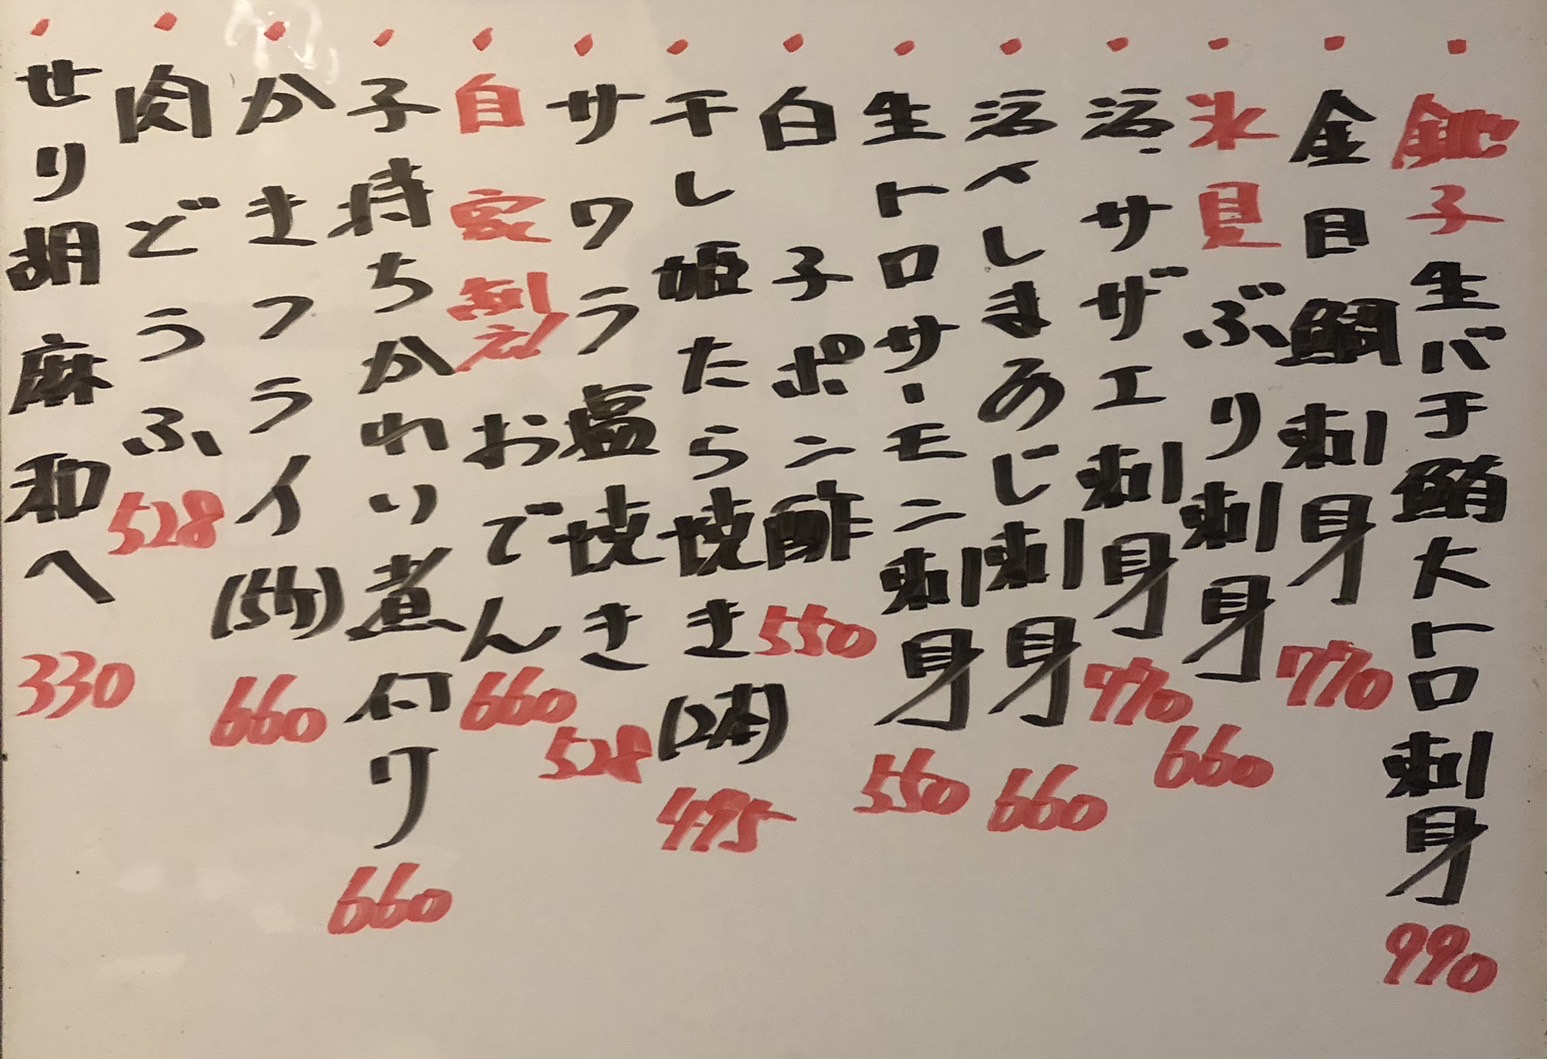 銚子生バチ鮪大トロ刺身 990
金目鯛刺身 770
氷見ぶり刺身 660
活サザエ刺身 770
活〆しまあじ刺身 660
生トロサーモン刺身 550
白子ポン酢 550
干し姫たら焼き(2本) 495
サワラ塩焼き 528
自家製おでん 660
子持ちかれい煮付け 660
かきフライ(5ヶ) 660
肉どうふ 528
せり胡麻和へ 330